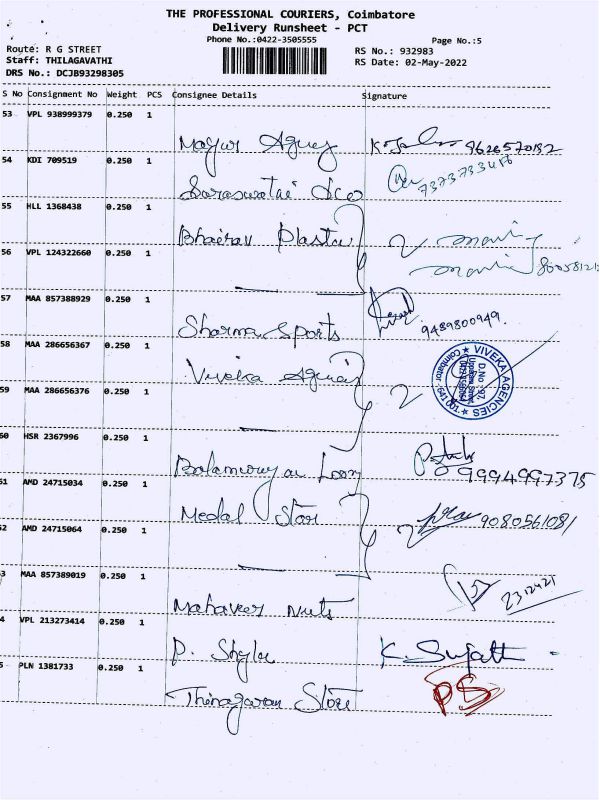 THE PROFESSIONAL COURIERS, Coimbatore
Delivery Runsheet - PCT
Phone No.:0422-3505555
Page No.:5
Route: R G STREET
RS No.: 932983
Staff: THILAGAVATHI
RS Date: 02-May-2022
DRS No.: DCJB93298305
S No Consignment No Weight PCS Consignee Details Signature
53 VPL 938999379 0.250 1
Mayur Agncy 9626570182
54 KDI 709519 0.250 1
Saraswatai 7373733416
55 HLL 1368438 0.250 1
Bhairav Plastic
56 VPL 124322660 0.250 1
57 MAA 857388929 0.250 1
Sharma Sports 9489800949.
58 MAA 286656367 0.250 1
Viveka
VIVEKA AGENCIES
Coimbatore - 641 001.
59 MAA 286656376 0.250 1
60 HSR 2367996 0.250 1
Balamurugan 9994997375
61 AMD 24715034 0.250 1
Medal Star 9080561081
62 AMD 24715064 0.250 1
3 MAA 857389019 0.250 1
Mahaveer Nuts 2312421
4 VPL 213273414 0.250 1
P. K. Sujatha
5 PLN 1381733 0.250 1
Thinagaran Store PS